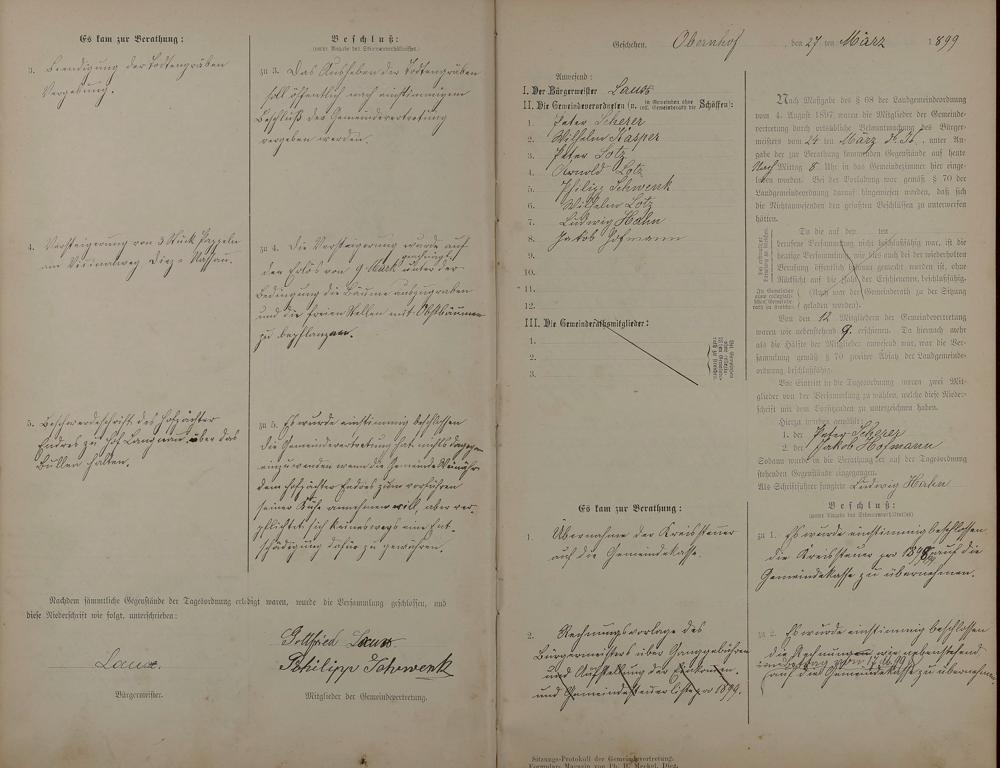 Es kam zur Berathung:
Beschluß:
(unter Angabe des Stimmenverhältnisses)
3. Beendigung der Todtengräben
Vergebung.
zu 3. Das Ausheben der Todtengräben
soll öffentlich nach einstimmigem
Beschluß der Gemeindevertretung
vergeben werden.
4. Versteigerung von 3 Stück Pappeln
am Vicinalweg Diez-Nassau.
zu 4. Die Versteigerung wurde auf
den Erlös von 9 Mark genehmigt unter der
Bedingung die Bäume auszugraben
und die freien Stellen mit Obstbäumen
zu bepflanzen.
5. Beschwerdeschrift des Hofpächter
Endres zu Hof Langnau über das
Bullen halten.
zu 5. Es wurde einstimmig beschlossen
die Gemeindevertretung hat nichts dagegen
einzuwenden wenn die Gemeinde
dem Hofpächter Endres zum vorführen
seiner Kühe annehmen will, aber ver-
pflichtet sich keineswegs eine Ent-
schädigung dafür zu gewähren.
Nachdem sämmtliche Gegenstände der Tagesordnung erledigt waren, wurde die Versammlung geschlossen, und
diese Niederschrift wie folgt, unterschrieben:
Laux.
Bürgermeister.
Gottfried Laux
Philipp Schwenk
Mitglieder der Gemeindevertretung.
Geschehen, Obernhof, den 27 ten März 1899
Anwesend:
I. Der Bürgermeister Laux
II. Die Gemeindeverordneten (u. in Gemeinden ohne coll. Gemeinderath die Schöffen):
1. Peter Scherer
2. Wilhelm Kasper
3. Peter Lotz
4. Arnold Lotz
5. Philipp Schwenk
6. Wilhelm Lotz
7. Ludwig Hahn
8. Jakob Hofmann
9.
10.
11.
12.
III. Die Gemeinderathsmitglieder:
1.
2.
3.
Nach Maßgabe des § 68 der Landgemeindeordnung
vom 4. August 1897, waren die Mitglieder der Gemeinde-
vertretung durch ortsübliche Bekanntmachung des Bürger-
meisters vom 24 ten März d. Js., unter An-
gabe der zur Berathung kommenden Gegenstände auf heute
Nach Mittag 8 Uhr in das Gemeindezimmer hier einge-
laden worden. Bei der Vorladung war gemäß § 70 der
Landgemeindeordnung darauf hingewiesen worden, daß sich
die Nichtanwesenden den gefaßten Beschlüssen zu unterwerfen
hätten.
Da die auf den ten
berufene Versammlung nicht beschlußfähig war, ist die
heutige Versammlung, wie dies auch bei der wiederholten
Berufung öffentlich bekannt gemacht worden ist, ohne
Rücksicht auf die Zahl der Erschienenen, beschlußfähig.
(Auch war der Gemeinderath zu der Sitzung
geladen worden).
Von den 12 Mitgliedern der Gemeindevertretung
waren wie nebenstehend 9. erschienen. Da hiernach mehr
als die Hälfte der Mitglieder anwesend war, war die Ver-
sammlung gemäß § 70 zweiter Absatz der Landgemeinde-
ordnung beschlußfähig.
Vor Eintritt in die Tagesordnung waren zwei Mit-
glieder von der Versammlung zu wählen, welche diese Nieder-
schrift mit dem Vorsitzenden zu unterzeichnen haben.
Hierzu wurden gewählt:
1. der Peter Scherer
2. der Jakob Hofmann
Sodann wurde in die Berathung der auf der Tagesordnung
stehenden Gegenstände eingegangen.
Als Schriftführer fungirte Ludwig Hahn
Es kam zur Berathung:
Beschluß:
(unter Angabe des Stimmenverhältnisses)
1. Übernahme der Kreissteuer
auf die Gemeindekasse.
zu 1. Es wurde einstimmig beschlossen
die Kreissteuer pro 1898/99 auf die
Gemeindekasse zu übernehmen.
2. Rechnungsvorlage des
Bürgermeisters über Ganggebühren
und Aufstellung der Einkommen-
und Gemeindesteuerliste pro 1899.
zu 2. Es wurde einstimmig beschlossen
die Rechnung wie nebenstehend
auf die Gemeindekasse zu übernehmen.
Sitzungs-Protokoll der Gemeindevertretung.
Formular-Magazin von Ph. H. Meckel, Diez.